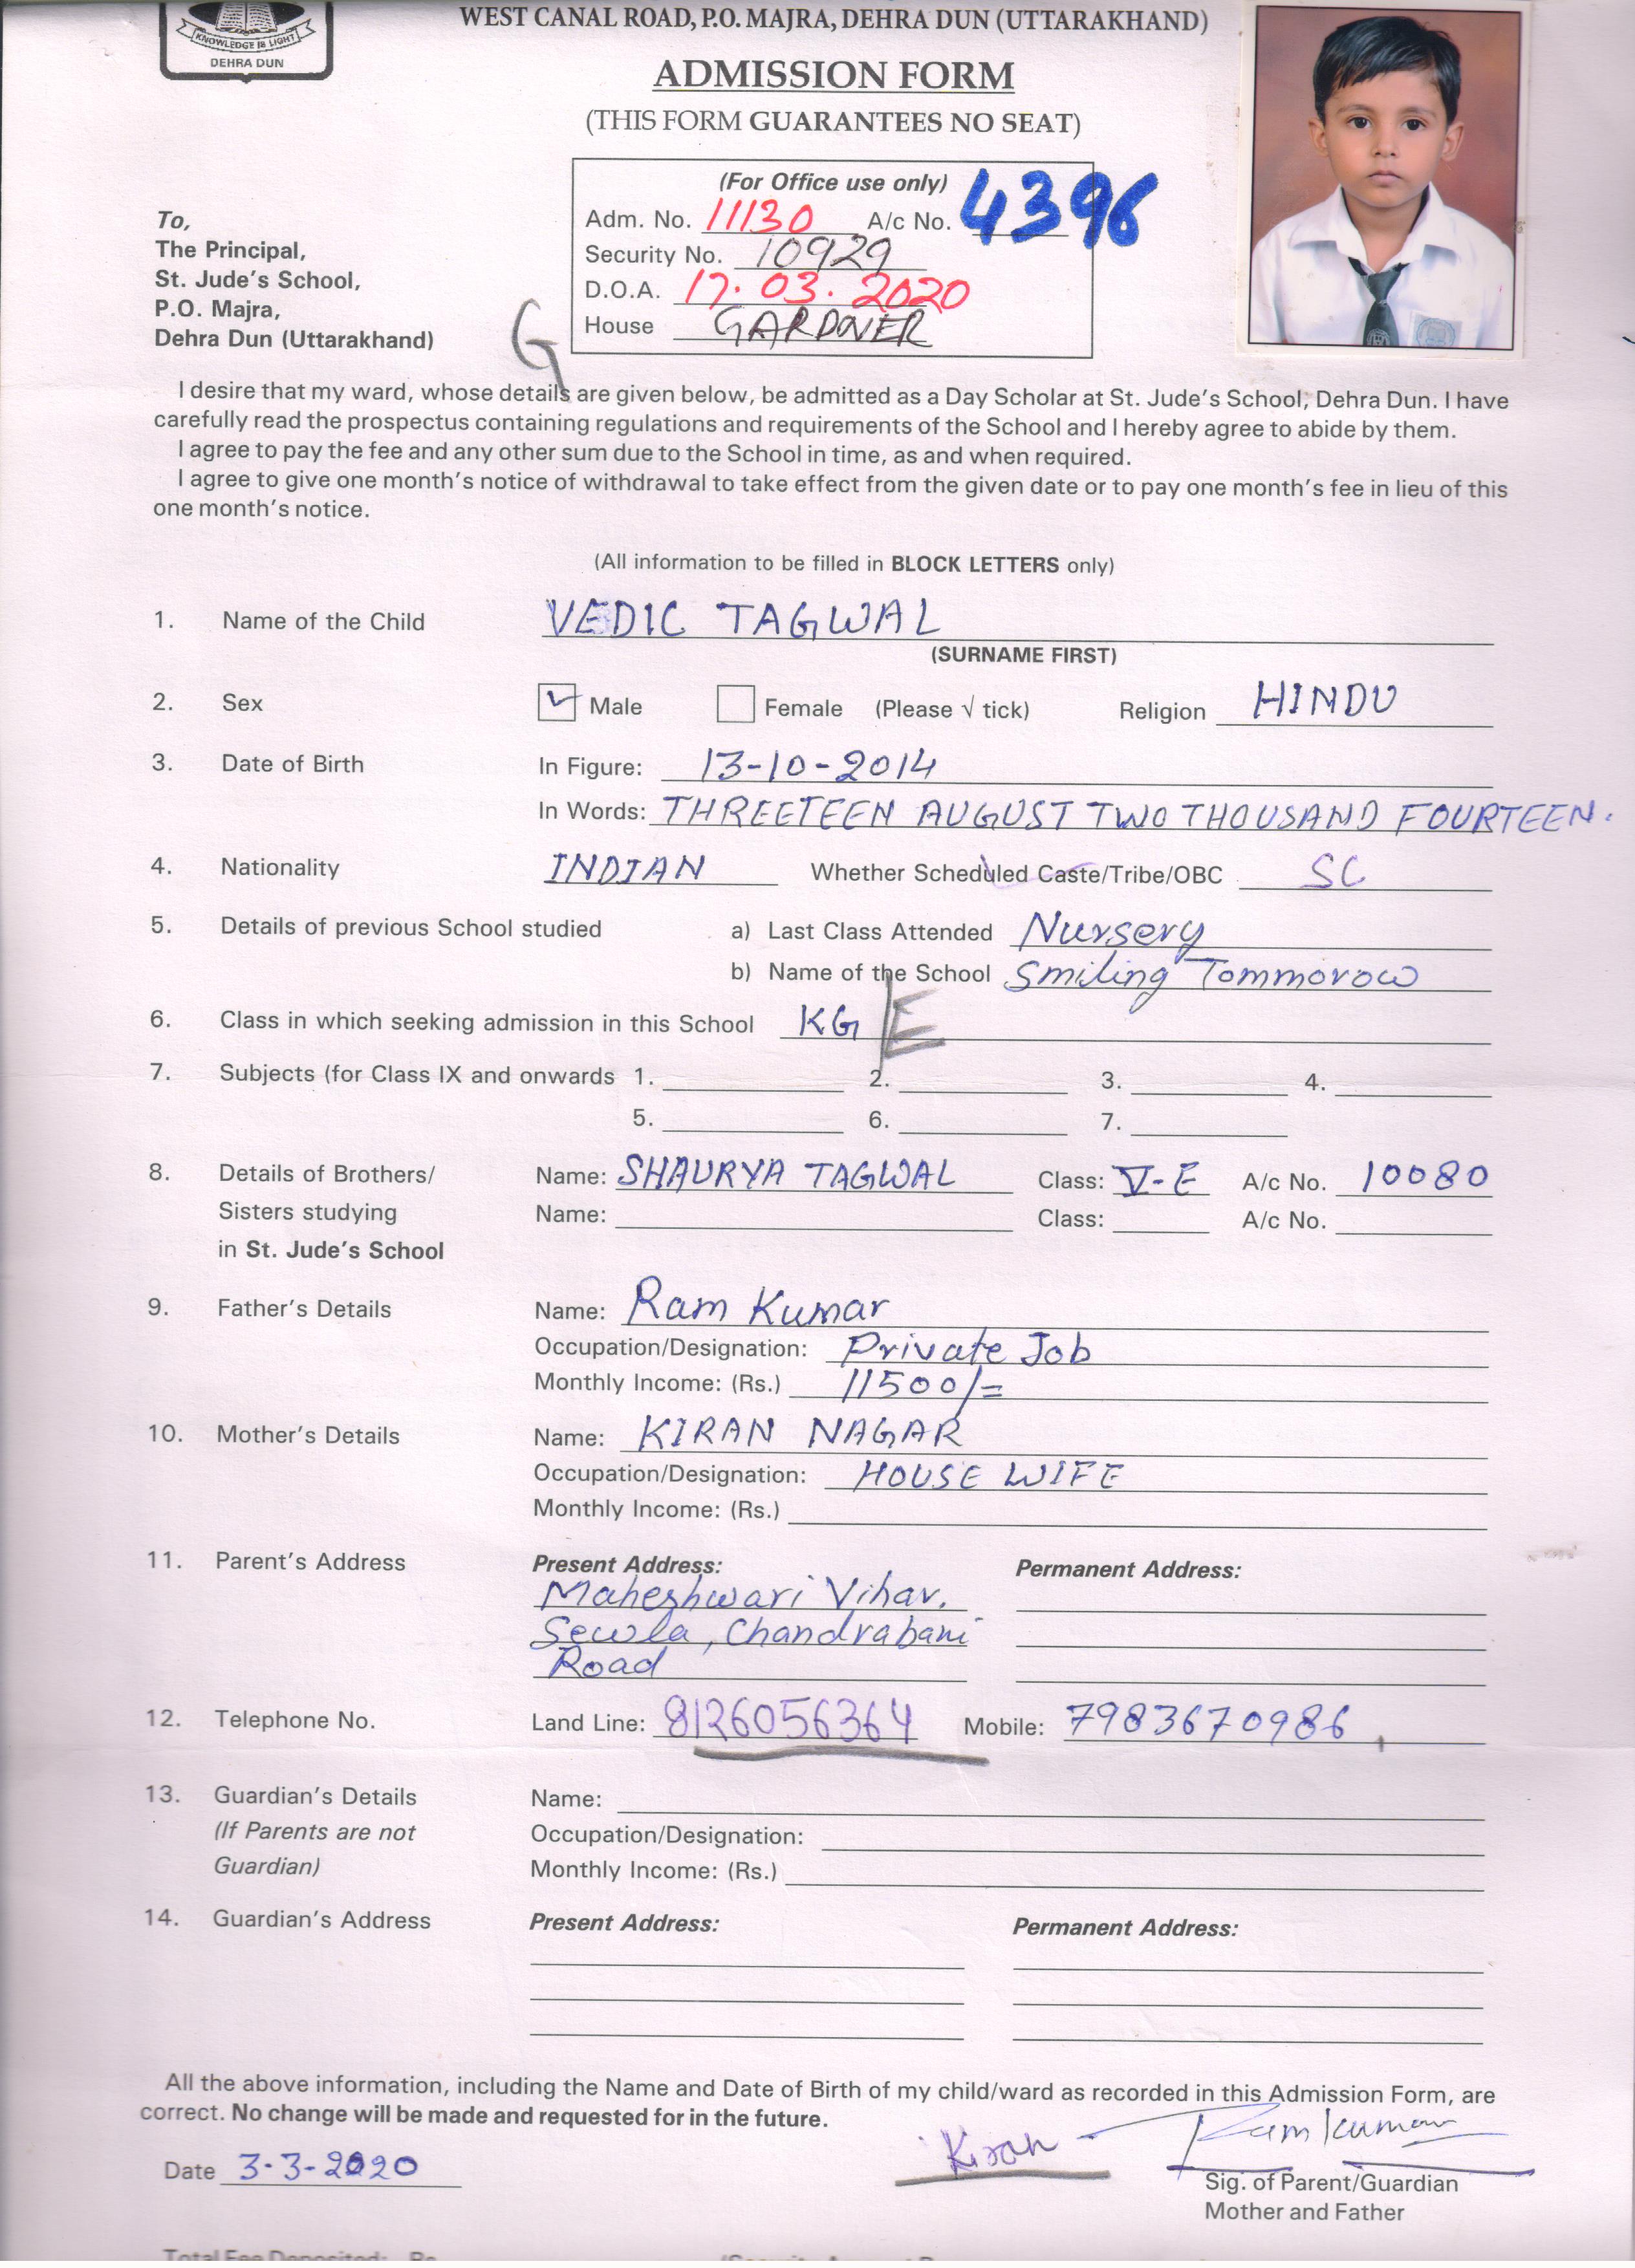 KNOWLEDGE IS LIGHT
DEHRA DUN
WEST CANAL ROAD, P.O. MAJRA, DEHRA DUN (UTTARAKHAND)
ADMISSION FORM
(THIS FORM GUARANTEES NO SEAT)
(For Office use only)
Adm. No. 11130 A/c No. 4396
Security No. 10929
D.O.A. 17.03.2020
House GARDNER
G
To,
The Principal,
St. Jude's School,
P.O. Majra,
Dehra Dun (Uttarakhand)
I desire that my ward, whose details are given below, be admitted as a Day Scholar at St. Jude's School, Dehra Dun. I have
carefully read the prospectus containing regulations and requirements of the School and I hereby agree to abide by them.
I agree to pay the fee and any other sum due to the School in time, as and when required.
I agree to give one month's notice of withdrawal to take effect from the given date or to pay one month's fee in lieu of this
one month's notice.
(All information to be filled in BLOCK LETTERS only)
1. Name of the Child VEDIC TAGWAL
(SURNAME FIRST)
2. Sex ✓ Male Female (Please √ tick) Religion HINDU
3. Date of Birth In Figure: 13-10-2014
In Words: THREETEEN AUGUST TWO THOUSAND FOURTEEN.
4. Nationality INDIAN Whether Scheduled Caste/Tribe/OBC SC
5. Details of previous School studied a) Last Class Attended Nursery
b) Name of the School Smiling Tommorow
6. Class in which seeking admission in this School KG E
7. Subjects (for Class IX and onwards 1. 2. 3. 4.
5. 6. 7.
8. Details of Brothers/ Name: SHAURYA TAGWAL Class: V-E A/c No. 10080
Sisters studying Name: Class: A/c No.
in St. Jude's School
9. Father's Details Name: Ram Kumar
Occupation/Designation: Private Job
Monthly Income: (Rs.) 11500/=
10. Mother's Details Name: KIRAN NAGAR
Occupation/Designation: HOUSE WIFE
Monthly Income: (Rs.)
11. Parent's Address Present Address: Permanent Address:
Maheshwari Vihar.
Sewla, Chandrabani
Road
12. Telephone No. Land Line: 8126056364 Mobile: 7983670986
13. Guardian's Details Name:
(If Parents are not Occupation/Designation:
Guardian) Monthly Income: (Rs.)
14. Guardian's Address Present Address: Permanent Address:
All the above information, including the Name and Date of Birth of my child/ward as recorded in this Admission Form, are
correct. No change will be made and requested for in the future.
Kiran Ram kumar
Date 3-3-2020
Sig. of Parent/Guardian
Mother and Father
Total Fee Deposited: Rs